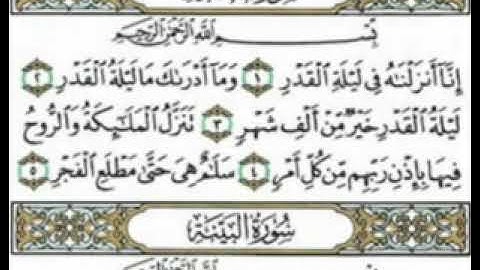 بِسْمِ ٱللَّهِ ٱلرَّحْمَٰنِ ٱلرَّحِيمِ
إِنَّآ أَنزَلْنَٰهُ فِى لَيْلَةِ ٱلْقَدْرِ ١ وَمَآ أَدْرَىٰكَ مَا لَيْلَةُ ٱلْقَدْرِ ٢
لَيْلَةُ ٱلْقَدْرِ خَيْرٌ مِّنْ أَلْفِ شَهْرٍ ٣ تَنَزَّلُ ٱلْمَلَٰٓئِكَةُ وَٱلرُّوحُ
فِيهَا بِإِذْنِ رَبِّهِم مِّن كُلِّ أَمْرٍ ٤ سَلَٰمٌ هِىَ حَتَّىٰ مَطْلَعِ ٱلْفَجْرِ ٥
سُورَةُ ٱلْبَيِّنَةِ